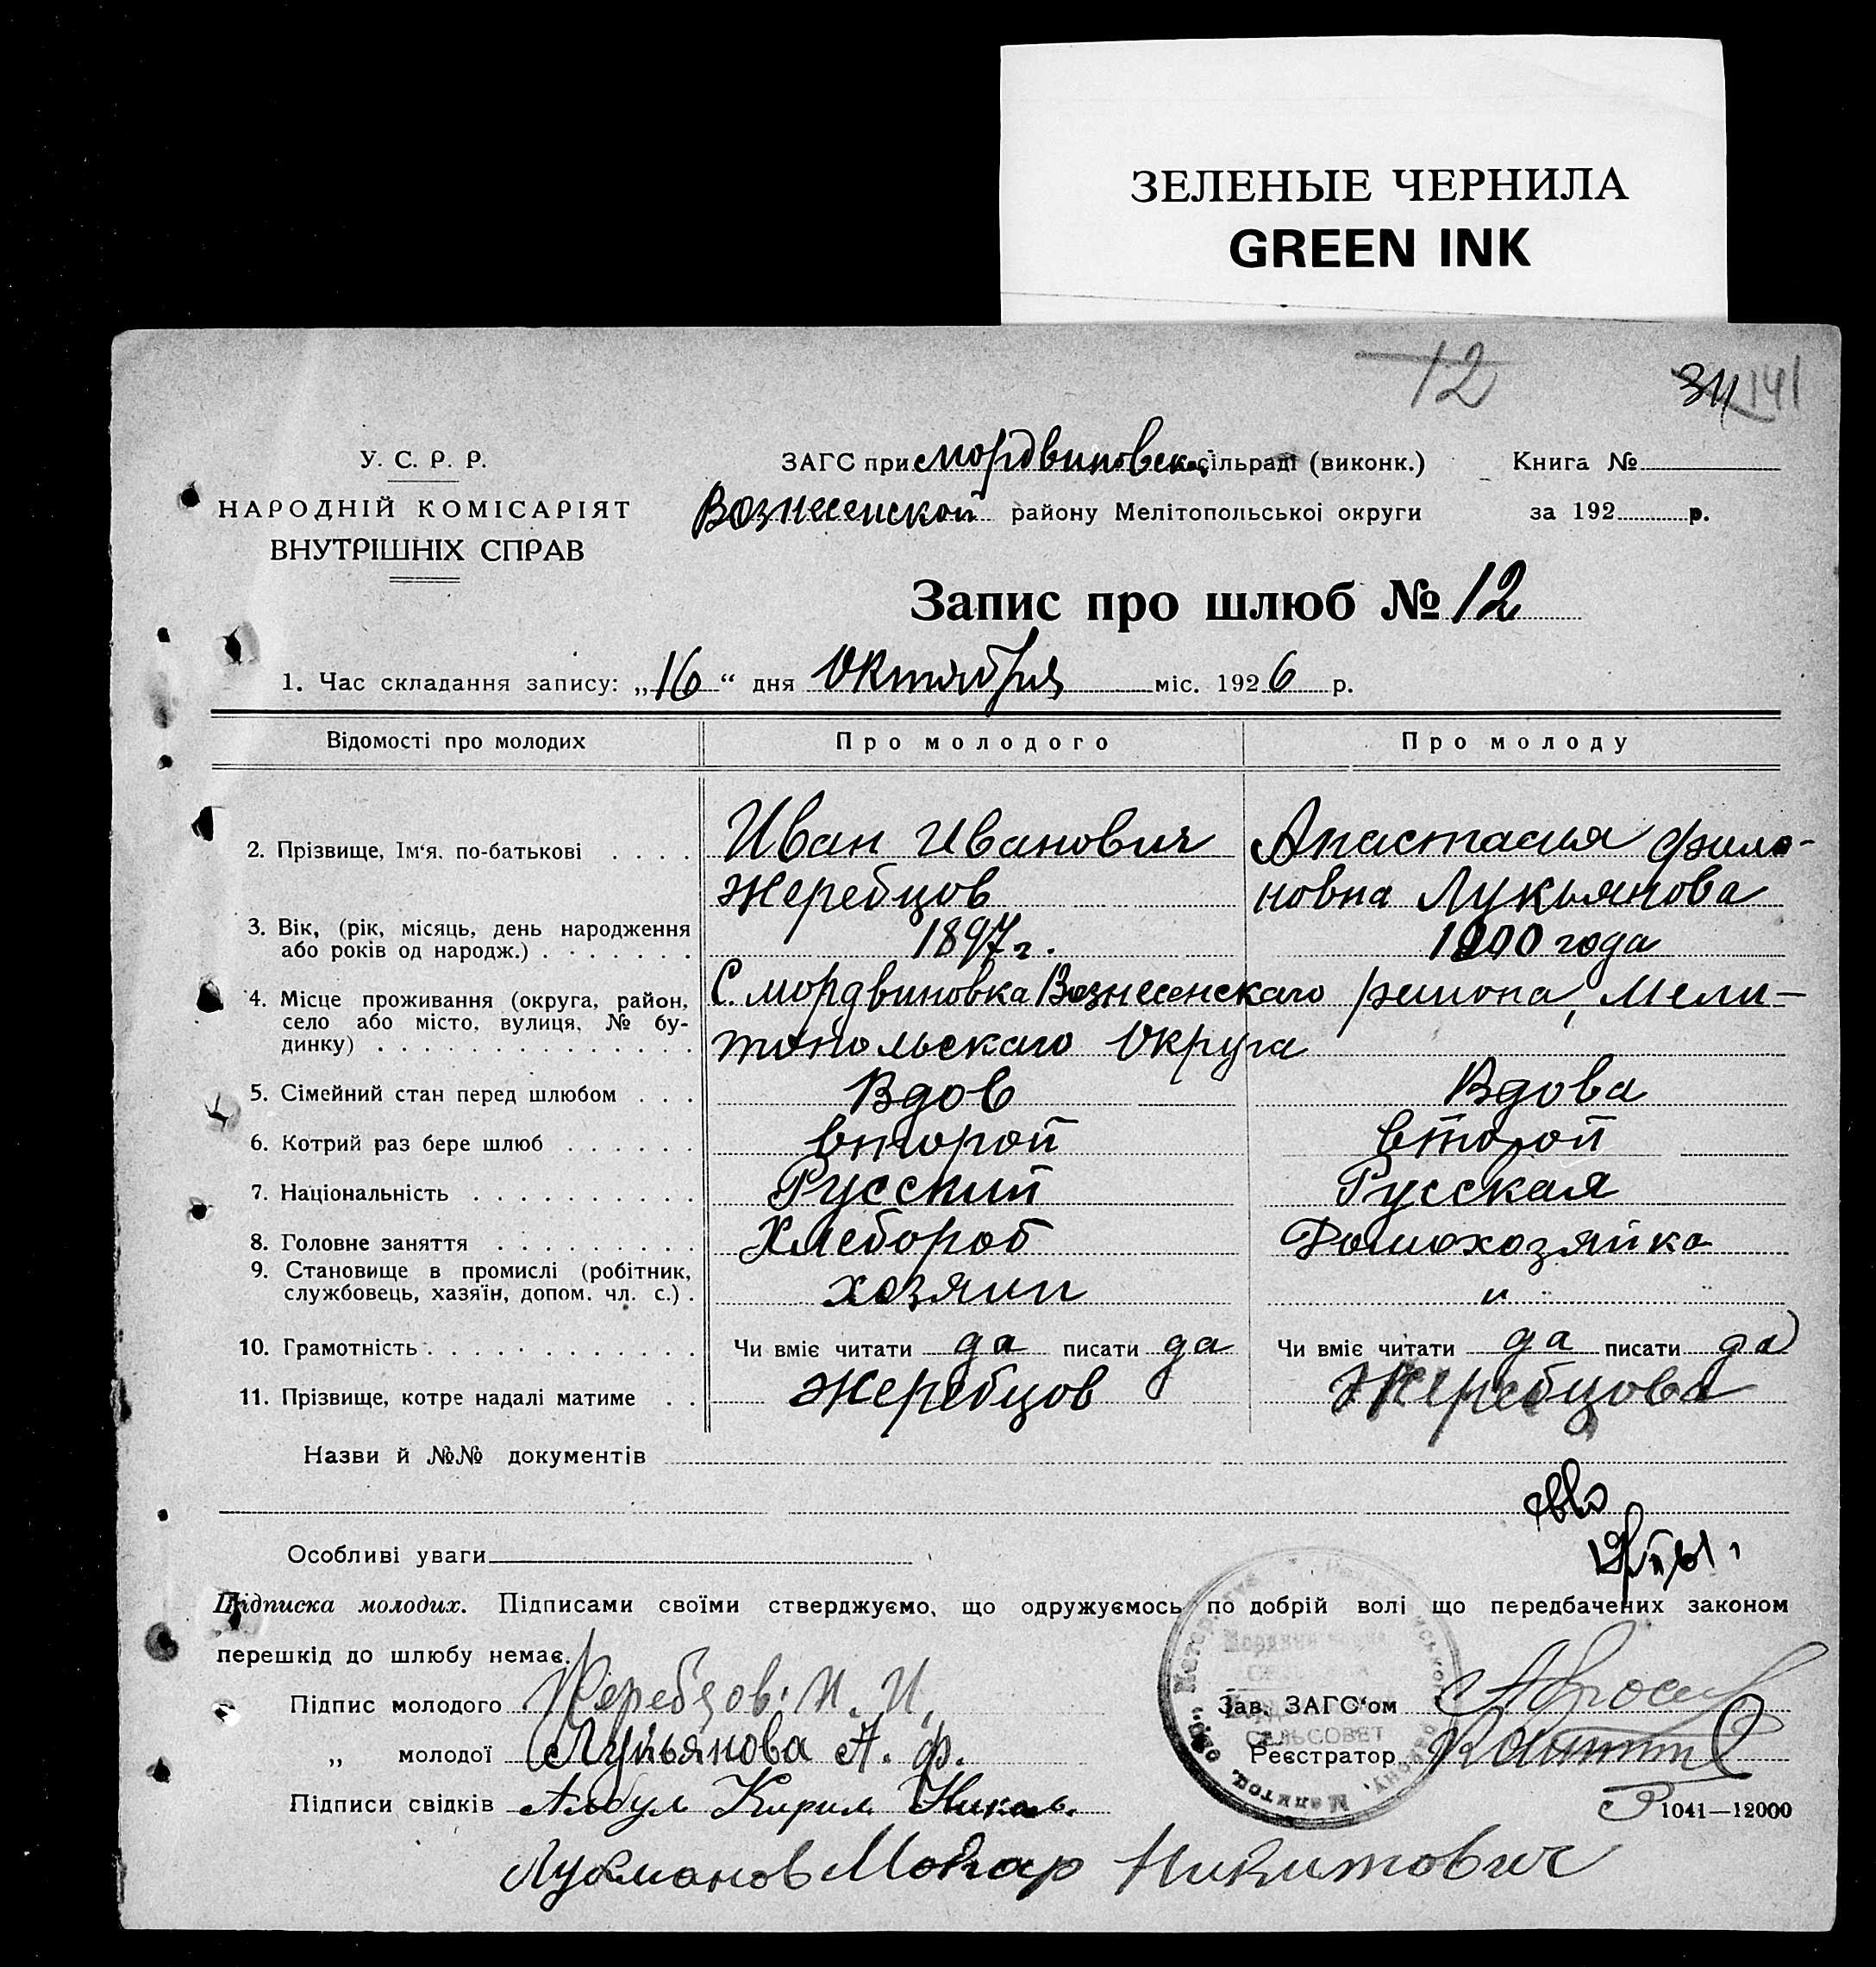 ЗЕЛЕНЫЕ ЧЕРНИЛА
GREEN INK
12
141
У. С. Р. Р.
НАРОДНІЙ КОМІСАРІЯТ
ВНУТРІШНІХ СПРАВ
ЗАГС при Мордвиновск. сільраді (виконк.)
Книга №
Вознесенской району Мелітопольської округи
за 192 р.
Запис про шлюб № 12
1. Час складання запису: „16“ дня Октября міс. 1926 р.
Відомості про молодих
Про молодого
Про молоду
2. Прізвище, Ім‘я. по-батькові
Иван Иванович
Жеребцов
Анастасия Фило-
новна Лукьянова
3. Вік, (рік, місяць, день народження
або років од народж.)
1897 г.
1900 года
4. Місце проживання (округа, район,
село або місто, вулиця, № бу-
динку)
С. Мордвиновка Вознесенскаго района, Мели-
топольскаго Округа
5. Сімейний стан перед шлюбом
Вдов
Вдова
6. Котрий раз бере шлюб
второй
второй
7. Національність
Русский
Русская
8. Головне заняття
Хлебороб
Домохозяйка
9. Становище в промислі (робітник,
службовець, хазяїн, допом. чл. с.)
хозяин
"
10. Грамотність
Чи вміє читати да писати да
Чи вміє читати да писати да
11. Прізвище, котре надалі матиме
Жеребцов
Жеребцова
Назви й №№ документів
Особливі уваги
Підписка молодих. Підписами своїми стверджуємо, що одружуємось по добрій волі що передбачених законом
перешкід до шлюбу немає.
Підпис молодого Жеребцов. И. И.
„ молодої Лукьянова А. Ф.
Підписи свідків Албул Кирил Никол.
Лукманов Макар Никитович
Зав. ЗАГС‘ом
Реєстратор
СЕЛЬСОВЕТ
1041—12000